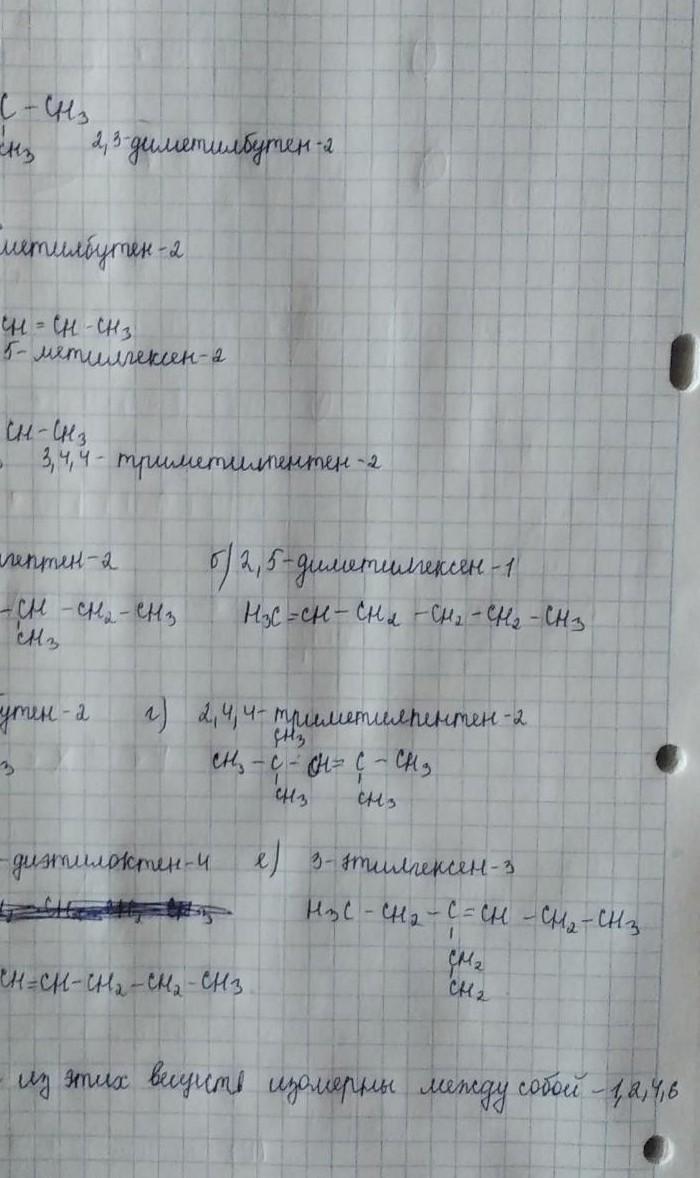 C - CH3
CH3 2,3-диметилбутен-2
метилбутен-2
CH = CH - CH3
5-метилгексен-2
CH - CH3
3,4,4- триметилпентен-2
гептен-2 б) 2,5-диметилгексен-1
- CH - CH2 - CH3 H3C = CH - CH2 - CH2 - CH2 - CH3
CH3
утен-2 г) 2,4,4-триметилпентен-2
CH3
3 CH3 - C - CH = C - CH3
CH3 CH3
-диэтилоктен-4 е) 3-этилгексен-3
H3C - CH2 - C = CH - CH2 - CH3
CH2
CH=CH-CH2-CH2-CH3 CH2
из этих веществ изомерны между собой - 1,2,4,6